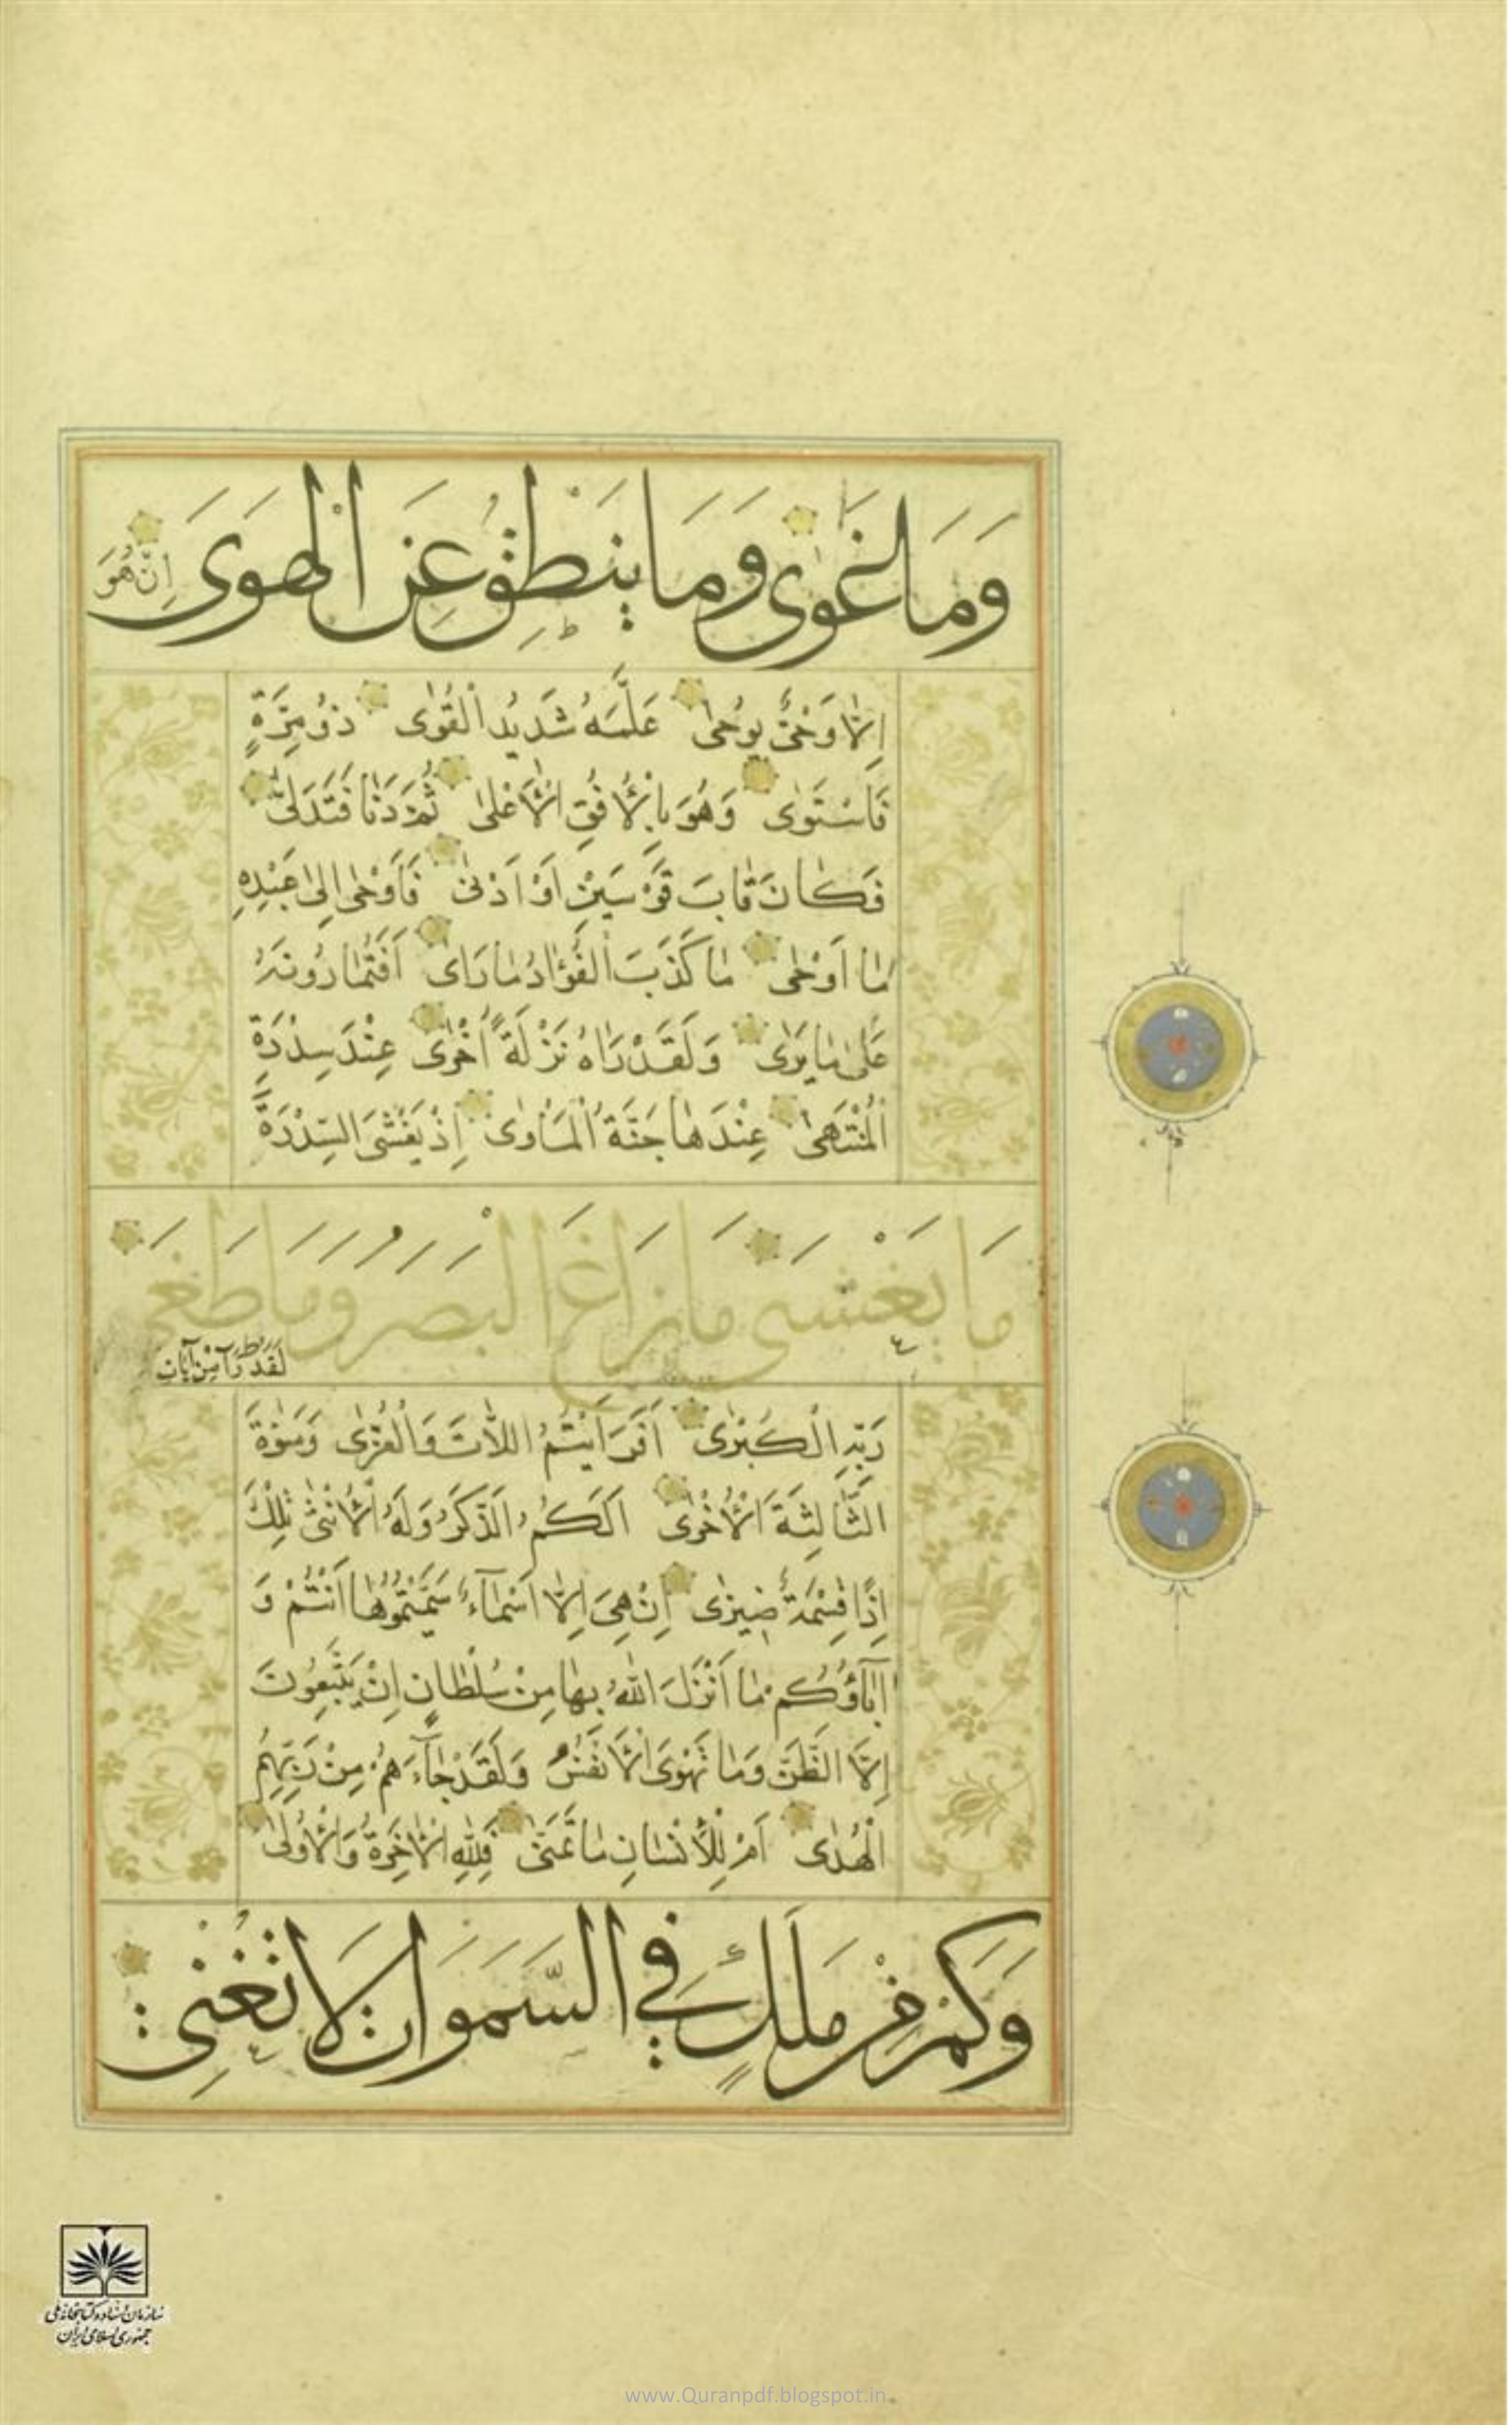 وَمَا غَوَىٰ وَمَا يَنْطِقُ عَنِ الْهَوَىٰ اِنْ هُوَ
اِلَّا وَحْیٌ یُوحٰی عَلَّمَهُ شَدٖیدُ الْقُوٰی ذُو مِرَّةٍ
فَاسْتَوٰی وَهُوَ بِالْاُفُقِ الْاَعْلٰی ثُمَّ دَنَا فَتَدَلّٰی
فَکَانَ قَابَ قَوْسَیْنِ اَوْ اَدْنٰی فَاَوْحٰی اِلٰی عَبْدِهِ
مَا اَوْحٰی مَا کَذَبَ الْفُؤَادُ مَا رَاٰی اَفَتُمَارُونَهُ
عَلٰی مَا یَرٰی وَلَقَدْ رَاٰهُ نَزْلَةً اُخْرٰی عِنْدَ سِدْرَةِ
الْمُنْتَهٰی عِنْدَهَا جَنَّةُ الْمَأْوٰی اِذْ یَغْشَی السِّدْرَةَ
مَا یَغْشٰی مَا زَاغَ الْبَصَرُ وَمَا طَغٰی
لَقَدْ رَاٰ مِنْ آیَاتِ
رَبِّهِ الْکُبْرٰی اَفَرَاَیْتُمُ اللَّاتَ وَالْعُزّٰی وَمَنٰوةَ
الثَّالِثَةَ الْاُخْرٰی اَلَکُمُ الذَّکَرُ وَلَهُ الْاُنْثٰی تِلْكَ
اِذًا قِسْمَةٌ ضٖیزٰی اِنْ هِیَ اِلَّا اَسْمَآءٌ سَمَّیْتُمُوهَا اَنْتُمْ وَ
اٰبَآؤُکُمْ مَا اَنْزَلَ اللّٰهُ بِهَا مِنْ سُلْطَانٍ اِنْ یَتَّبِعُونَ
اِلَّا الظَّنَّ وَمَا تَهْوَی الْاَنْفُسُ وَلَقَدْ جَآءَهُمْ مِنْ رَبِّهِمُ
الْهُدٰی اَمْ لِلْاِنْسَانِ مَا تَمَنّٰی فَلِلّٰهِ الْاٰخِرَةُ وَالْاُولٰی
وَكَمْ مِنْ مَلَكٍ فِي السَّمَوَاتِ لَا تُغْنِي
سازمان اسناد و کتابخانه ملی
جمهوری اسلامی ایران
www.Quranpdf.blogspot.in